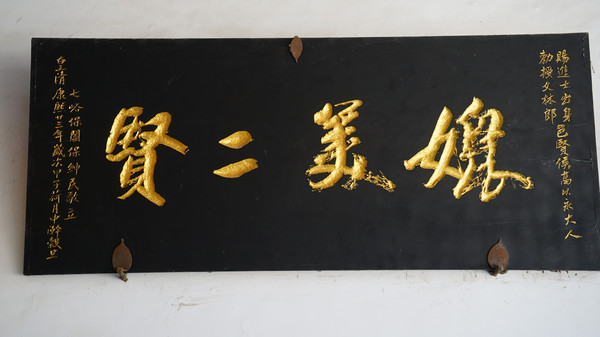 賜進士出身邑賢侯高以永大人
勅授文林郎
媲美二賢
七峪保闔保紳民敬立
皇清康熙廿三年歲次甲子荷月中澣穀旦